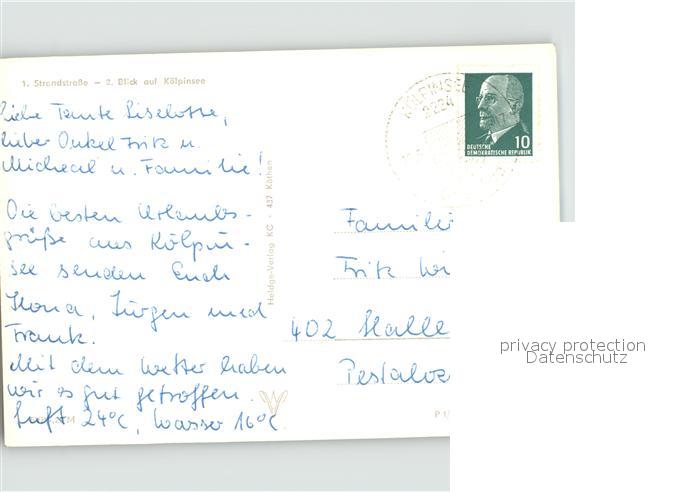 1. Strandstraße — 2. Blick auf Kölpinsee
Liebe Tante Liselotte,
lieber Onkel Fritz u.
Micheal u. Familie!
Die besten Urlaubs-
grüße aus Kölpin-
see senden Euch
Ilona, Jürgen und
Frank.
Mit dem Wetter haben
wir es gut getroffen.
Luft 24°C, Wasser 16°C.
Heldge-Verlag KG · 437 Köthen
KÖLPINSEE
2224
DEUTSCHE
DEMOKRATISCHE REPUBLIK
10
Familie
Fritz
402 Halle
Pestaloz
P 1/
privacy protection
Datenschutz